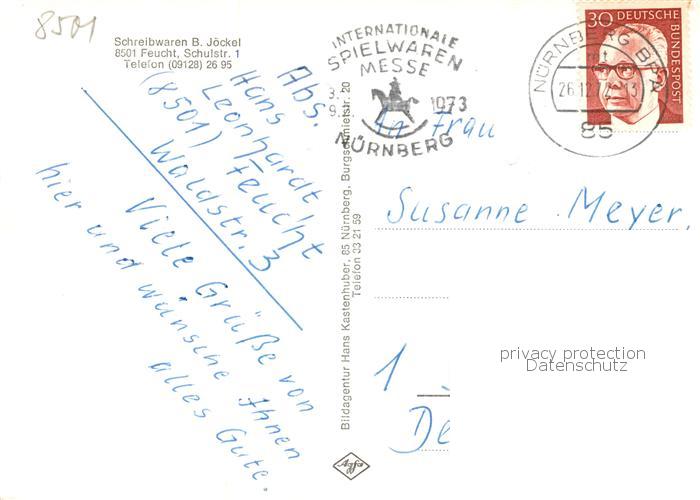 8501
Schreibwaren B. Jöckel
8501 Feucht, Schulstr. 1
Telefon (09128) 26 95
Abs.
Hans
Leonhardt
(8501) Feucht
Waldstr. 3
Viele Grüße von
hier und wünsche Ihnen
alles Gute.
Bildagentur Hans Kastenhuber, 85 Nürnberg, Burgschmietstr. 20
Telefon 33 21 59
Agfa
INTERNATIONALE
SPIELWAREN
MESSE
3.
9.
1973
NÜRNBERG
NÜRNBERG BPA
26.12.72-13
85
30 DEUTSCHE
BUNDESPOST
In Frau
Susanne Meyer.
1
De
privacy protection
Datenschutz